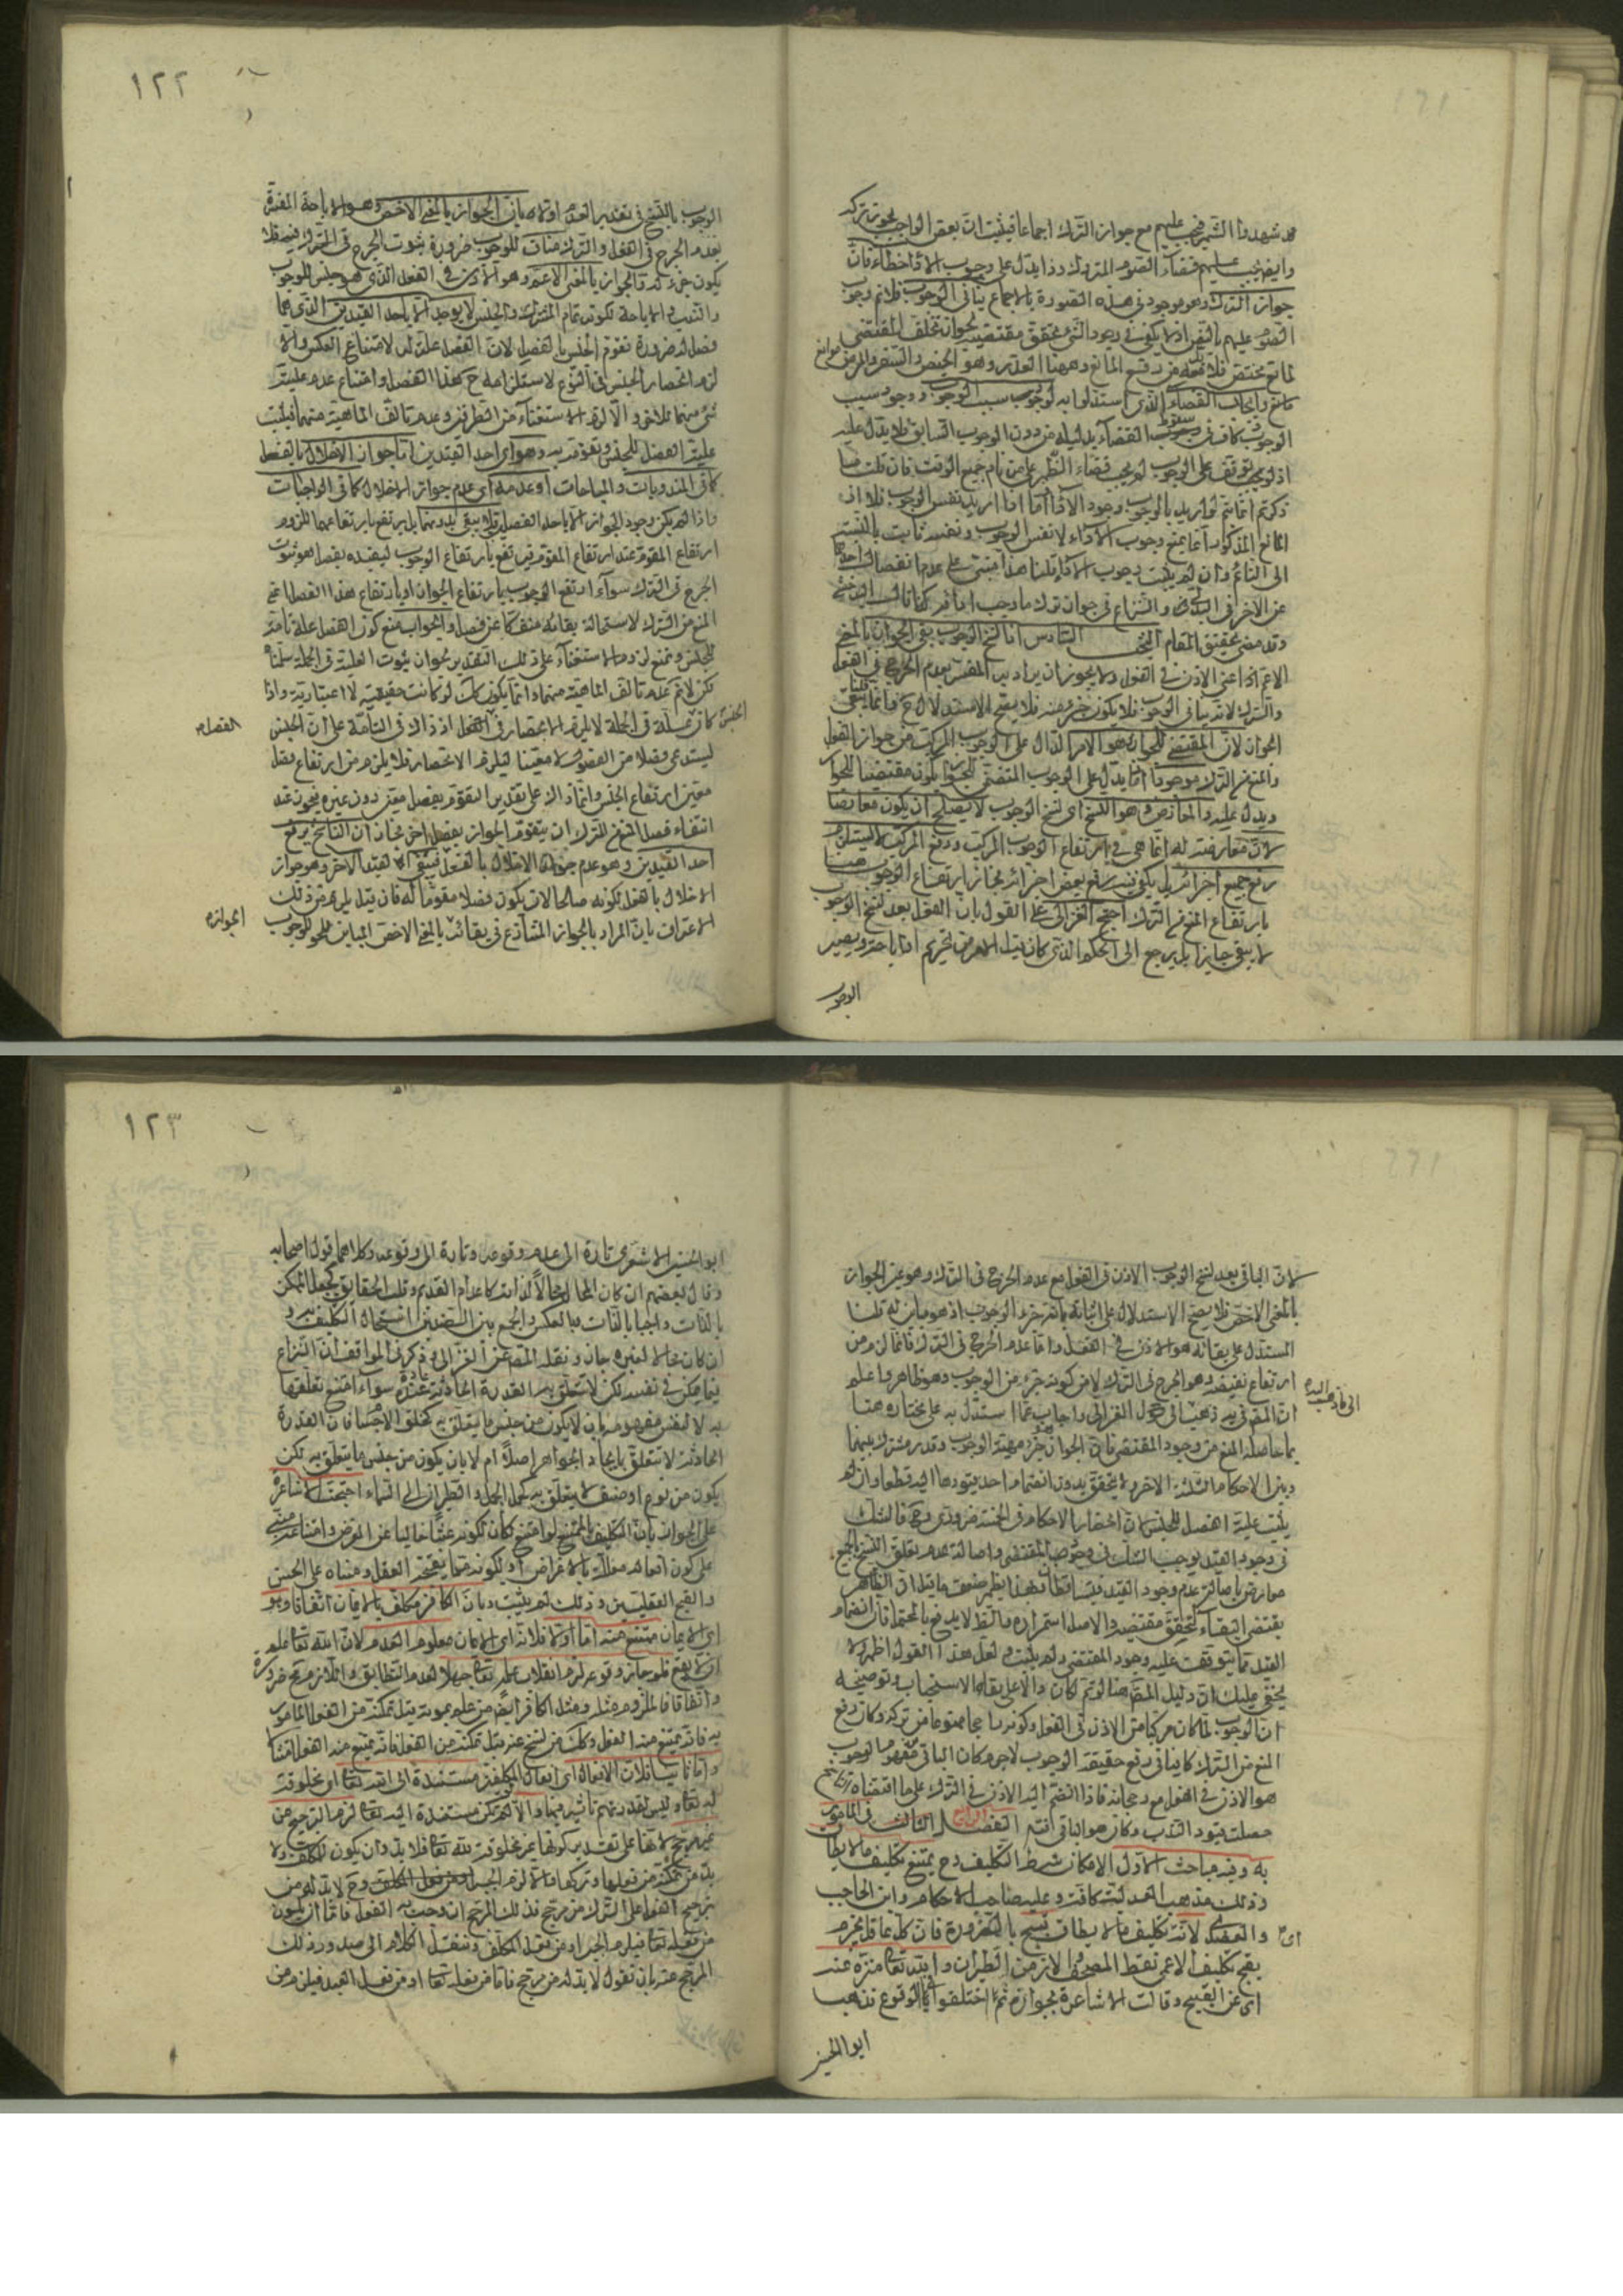 قد شهدوا الشهر فيجب عليهم مع جواز الترك اجماعا فيثبت ان بعض الواجب يجوز تركه
وايضا يجب عليهم قضاء الصوم المتروك وذا يدل على وجوب الاداء خطاء فان
جواز الترك وهو موجود في هذه الصورة بالاجماع ينافي الوجوب فلا نم وجوب
الصوم عليهم بالنص اذ لا يكفي في وجود الشي تحقق مقتضيه لجواز تخلف المقتضى
لمانع يختص فلا بد معه من رفع المانع وههنا العذر وهو الحيض والسفر والمرض موانع
مانع وايجاب القضاء الذي استدلوا به لوجوب سبب الوجوب ووجود سبب
الوجوب كاف في القضاء بدليله من دون الوجوب السابق فلا يدل عليه
اذ لو توقف على الوجوب لم يجب قضاء الظهر على من نام جميع الوقت فان قلت ما
ذكرتم انما يتم لو اريد بالوجوب وجود الاداء اما اذا اريد نفس الوجوب فلا اذ
المانع المذكور انما يمنع وجوب الاداء لا نفس الوجوب ونفسه ثابت بالنسبة
الى النائم وان لم يثبت وجوب الاداء قلنا هذا مبنى على عدم انفصال احدهما
عن الاخر في البدني والنزاع في جواز ترك ما وجب اداؤه
وقد مضى تحقيق المقام البحث السادس اذا نسخ الوجوب بقي الجواز بالمعنى
الاعم اعني الاذن في الفعل ولا يجوز ان يراد به المفسر بعدم الحرج في الفعل
والترك لانه ينافي الوجوب فلا يكون جزء منه فلا يصح الاستدلال ح وانما يبقى
الجواز لان المقتضى للجواز هو الامر الدال على الوجوب المركب من جواز الفعل
والمنع من الترك موجود اذ ما يدل على الوجوب المتضمن للجواز يكون مقتضيا للجواز
ويدل عليه والمعارض وهو النسخ اي نسخ الوجوب لا يصلح ان يكون معارضا
لان معارضته له انما هي في ارتفاع الوجوب المركب ورفع المركب لا يستلزم
رفع جميع اجزائه بل يكفي فيه رفع بعض اجزائه فجاز ارتفاع الوجوب هنا
بارتفاع المنع من الترك احتج الغزالي على القول بان الفعل بعد نسخ الوجوب
لا يبقى جايزا بل يرجع الى الحكم الذي كان قبل الامر من تحريم او اباحة ويصير
الوجوب
١٢٢
الوجوب بالنسخ في تقدير العدم اولا بان الجواز بالمعنى الاخص وهو الاباحة المفسرة
بعدم الحرج في الفعل والترك مناف للوجوب ضرورة ثبوت الحرج في الترك فيه فلا
يكون جزء له والجواز بالمعنى الاعم وهو الاذن في الفعل الذي هو جنس للوجوب
والندب والاباحة لكونه تمام المشترك والجنس لا يوجد الا باحد القيدين الذي هما
فصل له ضرورة تقوم الجنس بالفصل لان الفصل علة له لامتناع العكس والا
لزم انحصار الجنس في النوع لاستلزامه ح هذا الفصل وامتناع عدم علية
شئ منهما للاخر والا لزم الاستغناء من الطرفين وعدم تالف الماهية منهما فيثبت
علية الفصل للجنس وتقومه به وهو اي احد القيدين اما جواز الاخلال بالفعل
كما في المندوبات والمباحات او عدمه اي عدم جواز الاخلال كما في الواجبات
واذا لم يكن وجود الجواز الا باحد الفصلين فلا يبقى بدونهما بل يرتفع بارتفاعهما للزوم
ارتفاع المقوم عند ارتفاع المقوم فيرتفع بارتفاع الوجوب لتقيده بفصل هو ثبوت
الحرج في الترك سواء ارتفع الوجوب بارتفاع الجواز او بارتفاع هذا الفصل اعني
المنع من الترك لاستحالة بقائه منفكا عن فصل والجواب منع كون الفصل علة تامة
للجنس ونمنع لزوم الاستغناء على ذلك التقدير لجواز ثبوت العلية في الجملة سلمنا
لكن لا نم عدم تالف الماهية منهما وانما يكون كك لو كانت حقيقية لا اعتبارية واذا
كان علة في الجملة لا يلزم الانحصار في الفصل اذ ذاك في التامة على ان الجنس
الجنس
الفصل
ليستدعى فصلا من الفصول لا معينا ليلزم الانحصار فلا يلزم من ارتفاع فصل
معين ارتفاع الجنس وانما ذلك على تقدير التقوم بفصل معين دون غيره فيجوز عند
انتفاء فصل المنع من الترك ان يتقوم الجواز بفصل اخر فجاز ان الناسخ يرفع
احد القيدين وهو عدم جواز الاخلال بالفعل فيبقى القيد الاخر وهو جواز
الاخلال بالفعل لكونه صالحا لان يكون فصلا مقوما له فان قيل يلزم من ذلك
الاعتراف بان المراد بالجواز المتنازع في بقائه بالمعنى الاخص المباين للوجوب
الجوازه
لان الباقي بعد نسخ الوجوب الاذن في الفعل مع عدم الحرج في الترك وهو عين الجواز
بالمعنى الاخص فلا يصح الاستدلال على اثباته بانه جزء الوجوب اذ هو مباين له قلنا
المستدل على بقائه هو الاذن في الفعل واما عدم الحرج في الترك فانما لزم من
ارتفاع نقيضه وهو الحرج في الترك لا من كونه جزء من الوجوب وهو ظاهر واعلم
ان المص في يه ذهب الى قول الغزالي واجاب عما استدل به على مختاره هنا
بما حاصله المنع من وجود المقتضى فان الجواز جزء مهية الوجوب وقدر مشترك بينها
وبين الاحكام الثلثة الاخر ولا يتحقق بدون انضمام احد قيودها اليه قطعا وان لم
يثبت علية الفصل للجنس لان انحصار الاحكام في الخمسة ضروري وح فالشك
في وجود القيد يوجب الشك في وجود المقتضى واصالة عدم تعلق النسخ بالجميع
معارض باصالة عدم وجود القيد فيتساقطان وبهذا يظهر ضعف ما قيل ان الظاهر
يقتضى البقاء لتحقق مقتضيه والاصل استمراره فالظ لا يدفع بالمحتمل فان انضمام
القيد مما يتوقف عليه وجود المقتضى ولم يثبت ولعل هذا القول اظهر ولا
يخفى عليك ان دليل المص هنا لو تم لكان دالا على بقاء الاستحباب وتوضيحه
ان الوجوب لما كان مركبا من الاذن في الفعل وكونه راجحا ممنوعا من تركه وكان رفع
المنع من الترك كافيا في رفع حقيقة الوجوب لا جرم كان الباقي مفهوم الوجوب
هو الاذن في الفعل مع رجحانه فاذا انضم اليه الاذن في الترك على ما اقتضاه الناسخ
حصلت قيود الندب وكان هو الباقي انتهى الفصل الثالث في المامور
به وفيه مباحث الاول الامكان شرط التكليف وح يمتنع تكليف ما لا يطاق
وذلك مذهب العدلية كافة وعليه صاحب الاحكام وابن الحاجب
والعضدي لانه تكليف ما لا يطاق قبيح بالضرورة فان كل عاقل يجزم
بقبح تكليف الاعمى نقط المصحف والزمن الطيران والله تعالى منزه عنه
اي عن القبيح وقالت الاشاعرة بجوازه ثم اختلفوا في الوقوع فذهب
ابو الحسن
١٢٣
ابو الحسن الاشعري تارة الى عدم وقوعه وتارة الى وقوعه وكلاهما قول اصحابه
وقال بعضهم ان كان المحال محالا لذاته كاعدام القديم وقلب الحقايق كجعل الممكن
بالذات واجبا بالذات وبالعكس والجمع بين الضدين استحال التكليف به و
ان كان محالا لغيره جاز ونقله المص عن الغزالي وذكر في المواقف ان النزاع
فيما يمكن في نفسه لكن لا تتعلق به القدرة الحادثة عادة سواء امتنع تعلقها
به لا لنفس مفهومه بان لا يكون من جنس ما يتعلق به كخلق الاجسام فان القدرة
الحادثة لا تتعلق بايجاد الجواهر اصلا ام لا بان يكون من جنس ما يتعلق به لكن
يكون من نوع او صنف لا يتعلق به كحمل الجبل والطيران الى السماء احتجت الاشاعرة
على الجواز بان التكليف بالممتنع لو امتنع لكان لكونه عبثا خاليا عن الغرض وامتناعه مبني
على كون افعاله معللة بالاغراض او لكونه مما يقبحه العقل ومبناه على الحسن
والقبح العقليين وذلك لم يثبت وبان الكافر مكلف بالايمان اتفاقا وهو
اي الايمان ممتنع منه اما اولا فلانه اي الايمان معلوم العدم لان الله تعالى علم
انه لا يقع فلو جاز وقوعه لزم انقلاب علمه تعالى جهلا لعدم التطابق واللازم مح ضرورة
واتفاقا فالملزوم مثله ومثل الكافر ايضا من علم بموته قبل تمكنه من الفعل المامور
به فانه يمتنع منه الفعل وكذا من نسخ عنه قبل تمكنه من الفعل فانه يمتنع منه الفعل ايضا
واما ثانيا فلان الافعال اي افعال المكلفين مستندة الى الله تعالى اي مخلوقة
له تعالى وليس لقدرتهم تاثير فيها والا لم تكن مستندة اليه تعالى لزم الترجيح من
غير مرجح لانها على تقدير كونها غير مخلوقة لله تعالى فلا بد وان يكون للمكلف ولا
بد من تمكنه من فعلها وتركها والا لزم الجبر وح لا بد له من
ترجيح الفعل على الترك من مرجح فذلك المرجح ان وجب الفعل فاما ان يكون
من فعله تعالى فيلزم الجبر او من فعل المكلف وننقل الكلام الى صدور ذلك
المرجح عنه بان نقول لا بد له من مرجح فاما من فعله تعالى او من فعل العبد فيلزم من